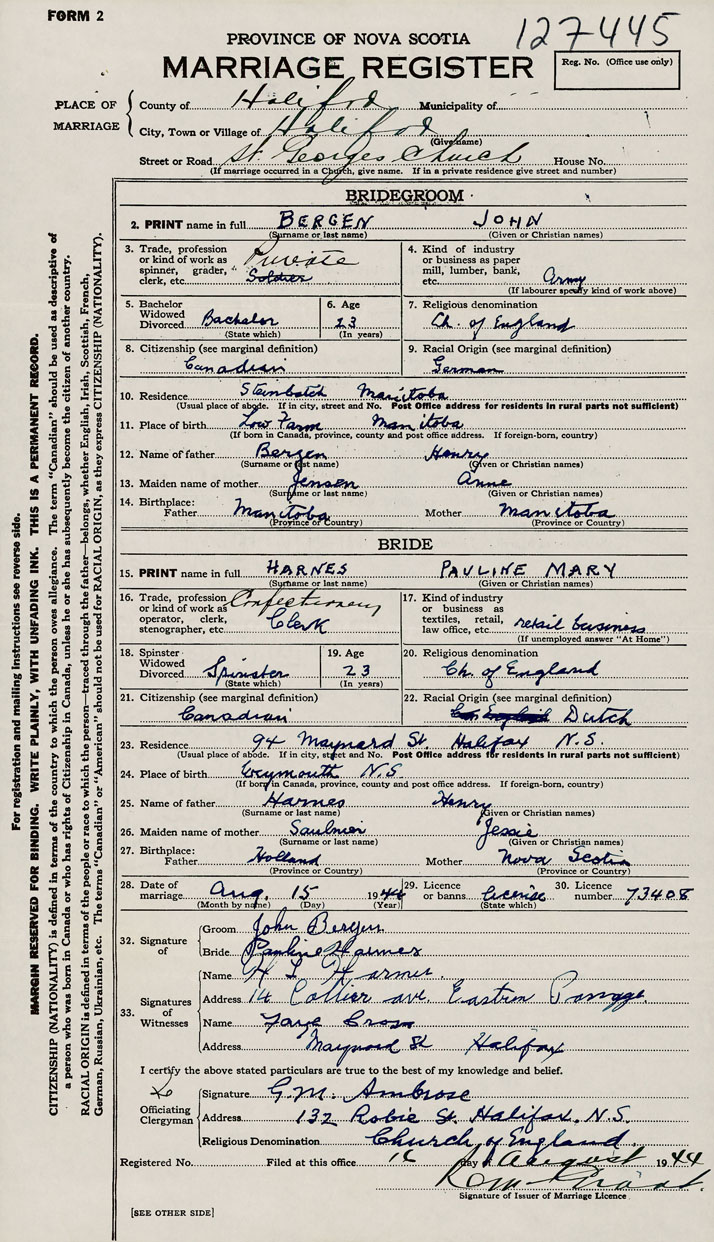 FORM 2
127445
PROVINCE OF NOVA SCOTIA
MARRIAGE REGISTER
Reg. No. (Office use only)
PLACE OF MARRIAGE
County of Halifax Municipality of
City, Town or Village of Halifax
(Give name)
Street or Road St. Georges Church House No.
(If marriage occurred in a Church, give name. If in a private residence give street and number)
BRIDEGROOM
2. PRINT name in full BERGEN JOHN
(Surname or last name) (Given or Christian names)
3. Trade, profession or kind of work as spinner, grader, clerk, etc. Private Soldier
4. Kind of industry or business as paper mill, lumber, bank, etc. Army
(If labourer specify kind of work above)
5. Bachelor Widowed Divorced Bachelor
(State which)
6. Age 23
(In years)
7. Religious denomination Ch. of England
8. Citizenship (see marginal definition) Canadian
9. Racial Origin (see marginal definition) German
10. Residence Steinbach Manitoba
(Usual place of abode. If in city, street and No. Post Office address for residents in rural parts not sufficient)
11. Place of birth Low Farm Manitoba
(If born in Canada, province, county and post office address. If foreign-born, country)
12. Name of father Bergen Henry
(Surname or last name) (Given or Christian names)
13. Maiden name of mother Jensen Anne
(Surname or last name) (Given or Christian names)
14. Birthplace: Father Manitoba Mother Manitoba
(Province or Country) (Province or Country)
BRIDE
15. PRINT name in full HARNES PAULINE MARY
(Surname or last name) (Given or Christian names)
16. Trade, profession or kind of work as operator, clerk, stenographer, etc. Confectionery Clerk
17. Kind of industry or business as textiles, retail, law office, etc. retail business
(If unemployed answer "At Home")
18. Spinster Widowed Divorced Spinster
(State which)
19. Age 23
(In years)
20. Religious denomination Ch. of England
21. Citizenship (see marginal definition) Canadian
22. Racial Origin (see marginal definition) Dutch
23. Residence 94 Maynard St. Halifax N.S.
(Usual place of abode. If in city, street and No. Post Office address for residents in rural parts not sufficient)
24. Place of birth Weymouth N.S.
(If born in Canada, province, county and post office address. If foreign-born, country)
25. Name of father Harnes Henry
(Surname or last name) (Given or Christian names)
26. Maiden name of mother Saulnier Jessie
(Surname or last name) (Given or Christian names)
27. Birthplace: Father Holland Mother Nova Scotia
(Province or Country) (Province or Country)
28. Date of marriage Aug. 15 1944
(Month by name) (Day) (Year)
29. Licence or banns license
(State which)
30. Licence number 73408
32. Signature of
Groom John Bergen
Bride Pauline Harnes
33. Signatures of Witnesses
Name H L Harnes
Address 14 ave. Eastern Passage
Name Faye Cross
Address Maynard St Halifax
I certify the above stated particulars are true to the best of my knowledge and belief.
Officiating Clergyman
Signature G.M. Ambrose
Address 132 Robie St. Halifax. N.S.
Religious Denomination Church of England
Registered No. Filed at this office 16 day of August 1944
Signature of Issuer of Marriage Licence
[SEE OTHER SIDE]
For registration and mailing instructions see reverse side.
MARGIN RESERVED FOR BINDING. WRITE PLAINLY, WITH UNFADING INK. THIS IS A PERMANENT RECORD.
CITIZENSHIP (NATIONALITY) is defined in terms of the country to which the person owes allegiance. The term "Canadian" should be used as descriptive of
a person who was born in Canada or who has rights of Citizenship in Canada, unless he or she has subsequently become the citizen of another country.
RACIAL ORIGIN is defined in terms of the people or race to which the person—traced through the father—belongs, whether English, Irish, Scottish, French,
German, Russian, Ukrainian, etc. The terms "Canadian" or "American" should not be used for RACIAL ORIGIN, as they express CITIZENSHIP (NATIONALITY).